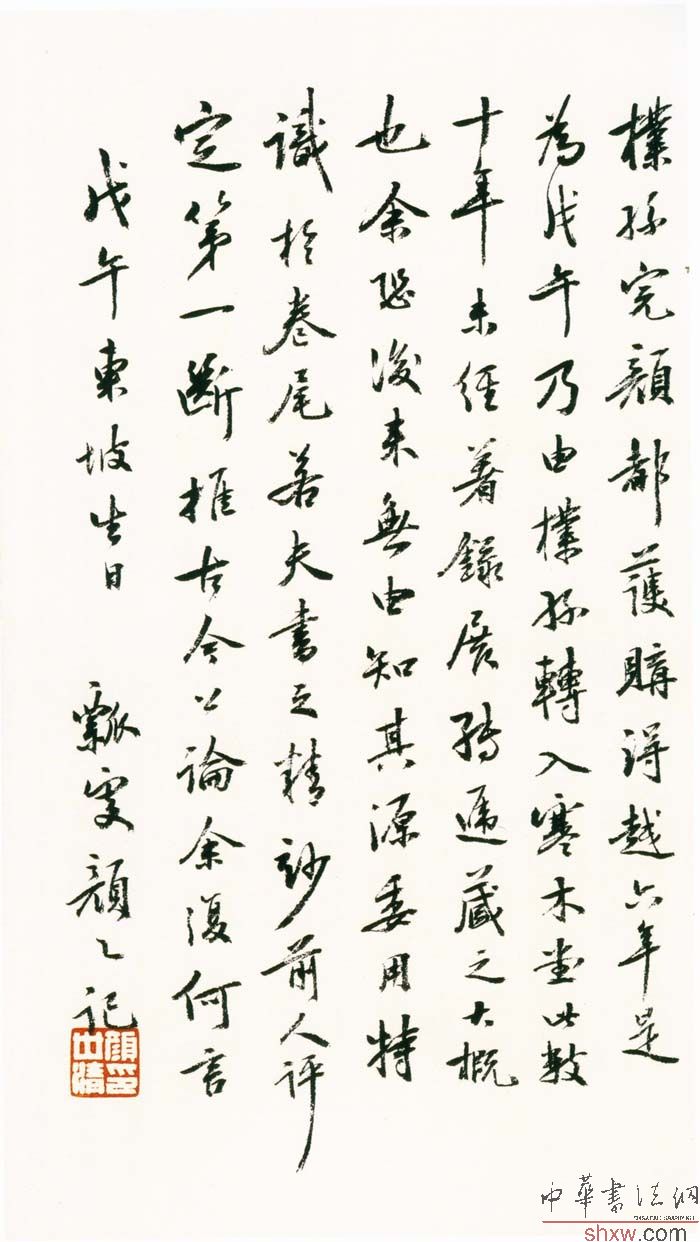 樸孫完顏都護購得越六年是
為戊午乃由樸孫轉入寒木堂此數
十年未經著錄展轉遞藏之大概
也余恐後來無由知其源委用特
識於卷尾若夫書之精妙前人評
定第一斷推古今公論余復何言
戊午東坡生日 瓢叟顏之記
顏世清印
中華書法網
shxw.com